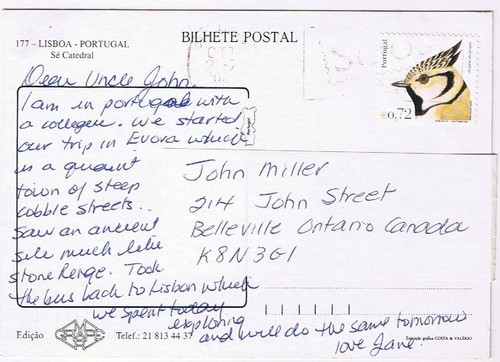 177 – LISBOA - PORTUGAL
Sé Catedral
BILHETE POSTAL
Portugal
€0,72
Dear Uncle John,
I am in portugal with
a collegue. We started
our trip in Evora which
is a quaint
town of steep
cobble streets..
saw an ancient
site much like
stone Henge. Took
the bus back to Lisbon which
we spent today
exploring
and will do the same tomorrow
love Jane.
Portugal
John Miller
214 John Street
Belleville Ontario Canada
K8N3G1
Edição
GRAFIC
Telef.: 21 813 44 37
Execução gráfica COSTA & VALÉRIO